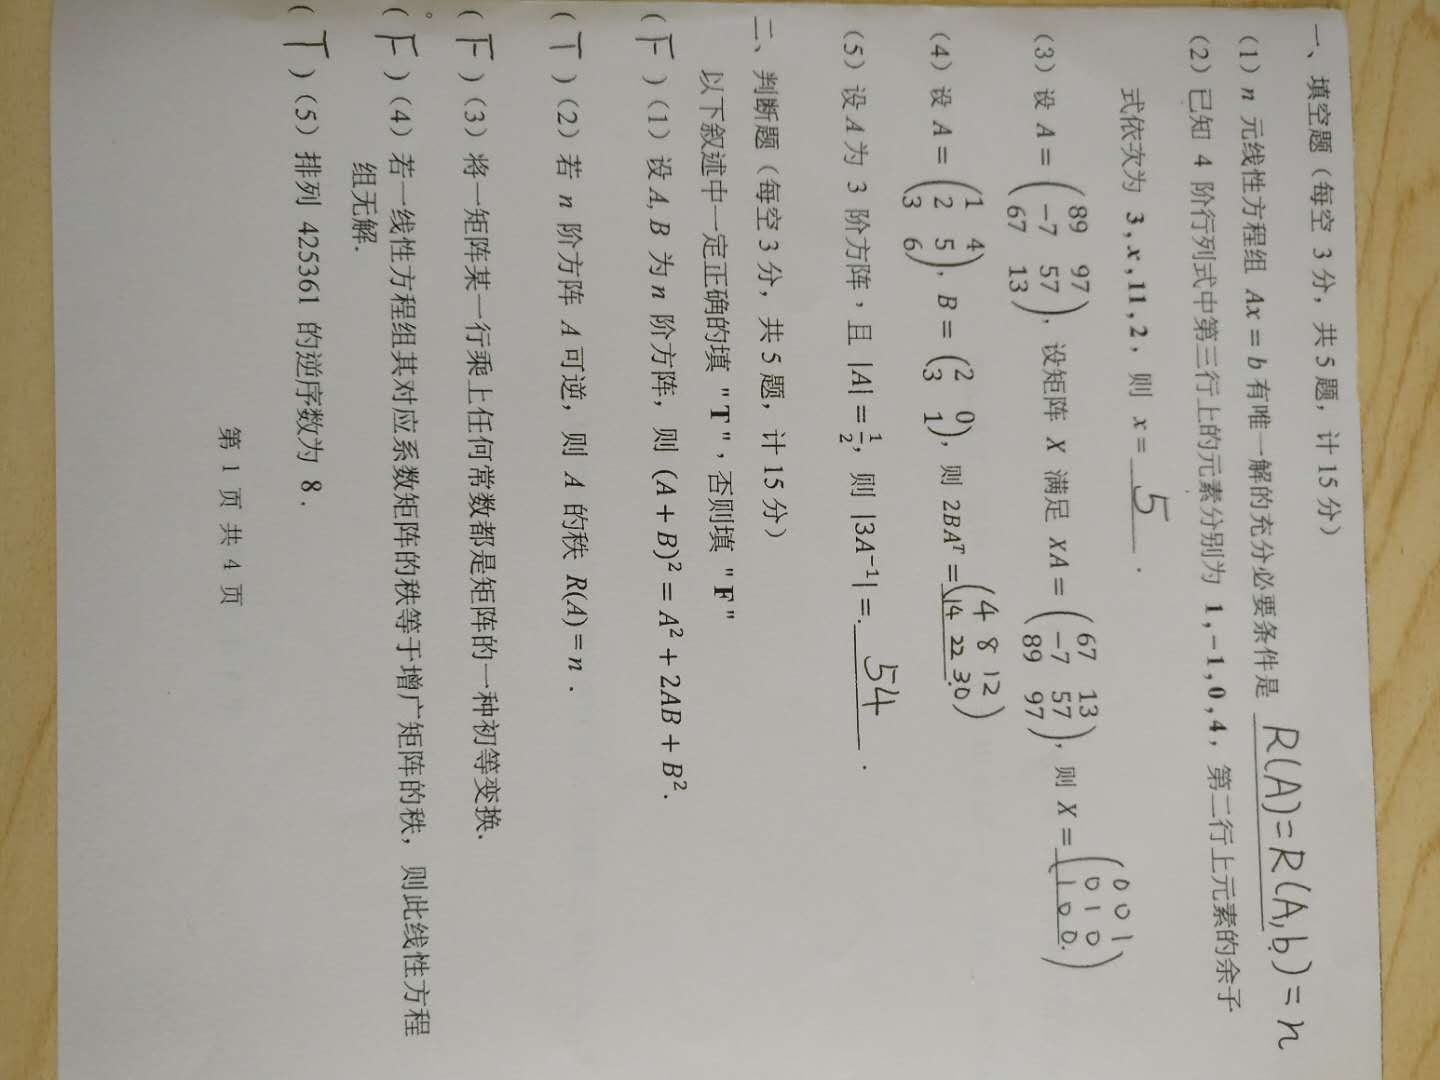 一、填空题（每空 3 分，共 5 题，计 15 分）
（1）n 元线性方程组 Ax = b 有唯一解的充分必要条件是 R(A)=R(A,b)=n
（2）已知 4 阶行列式中第三行上的元素分别为 1,−1,0,4，第二行上元素的余子
式依次为 3,x,11,2，则 x = 5 .
（3）设 A = (89 97; −7 57; 67 13)，设矩阵 X 满足 XA = (67 13; −7 57; 89 97)，则 X = (0 0 1; 0 1 0; 1 0 0).
（4）设 A = (1 4; 2 5; 3 6)，B = (2 0; 3 1)，则 2BAᵀ = (4 8 12; 14 22 30).
（5）设 A 为 3 阶方阵，且 |A| = 1/2，则 |3A⁻¹| =. 54 .
二、判断题（每空 3 分，共 5 题，计 15 分）
以下叙述中一定正确的填 "T"，否则填 "F"
( F )（1）设 A, B 为 n 阶方阵，则 (A + B)² = A² + 2AB + B².
( T )（2）若 n 阶方阵 A 可逆，则 A 的秩 R(A) = n .
( F )（3）将一矩阵某一行乘上任何常数都是矩阵的一种初等变换.
( F )（4）若一线性方程组其对应系数矩阵的秩等于增广矩阵的秩，则此线性方程
组无解.
( T )（5）排列 425361 的逆序数为 8 .
第 1 页 共 4 页